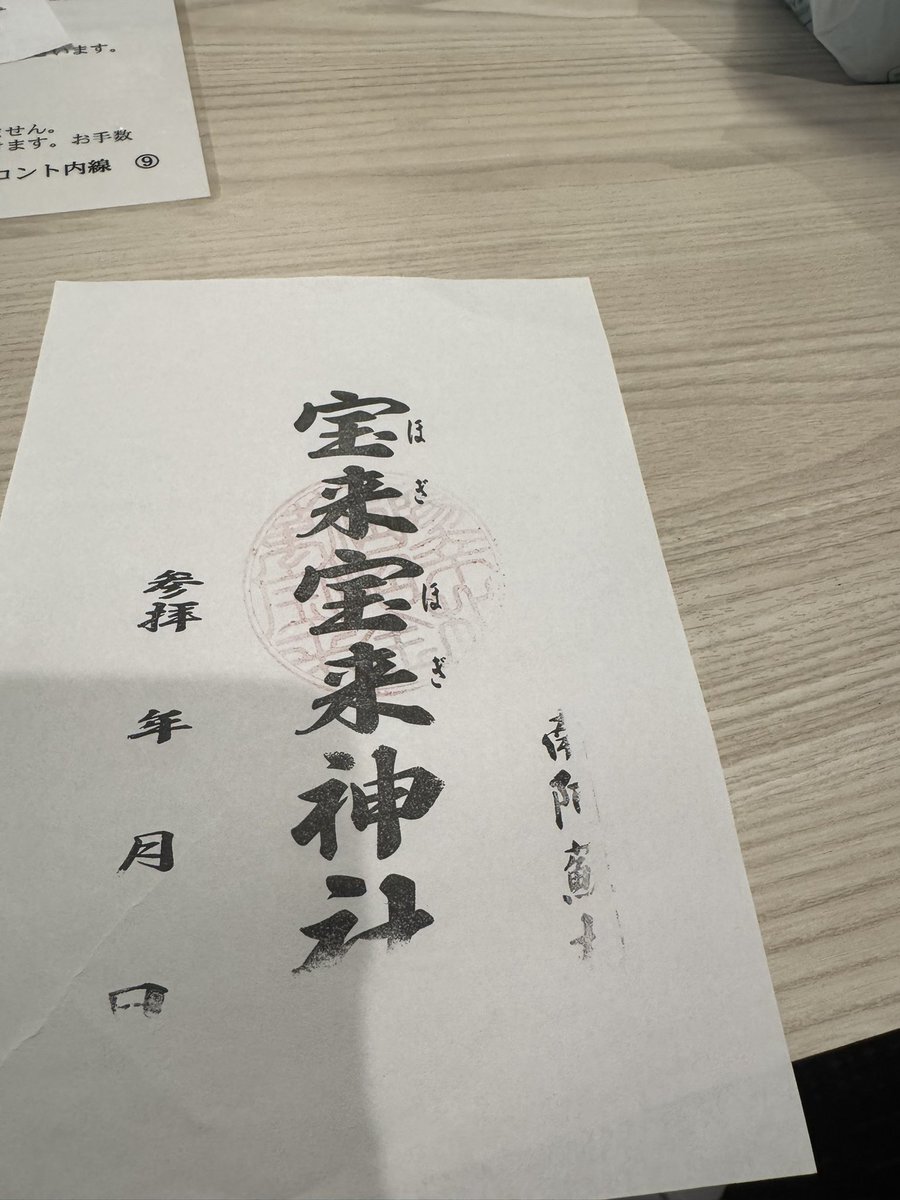 います。
せん。
ます。お手数
ロント内線 ⑨
宝来宝来神社
ほぎ ほぎ
参拝 年 月 日